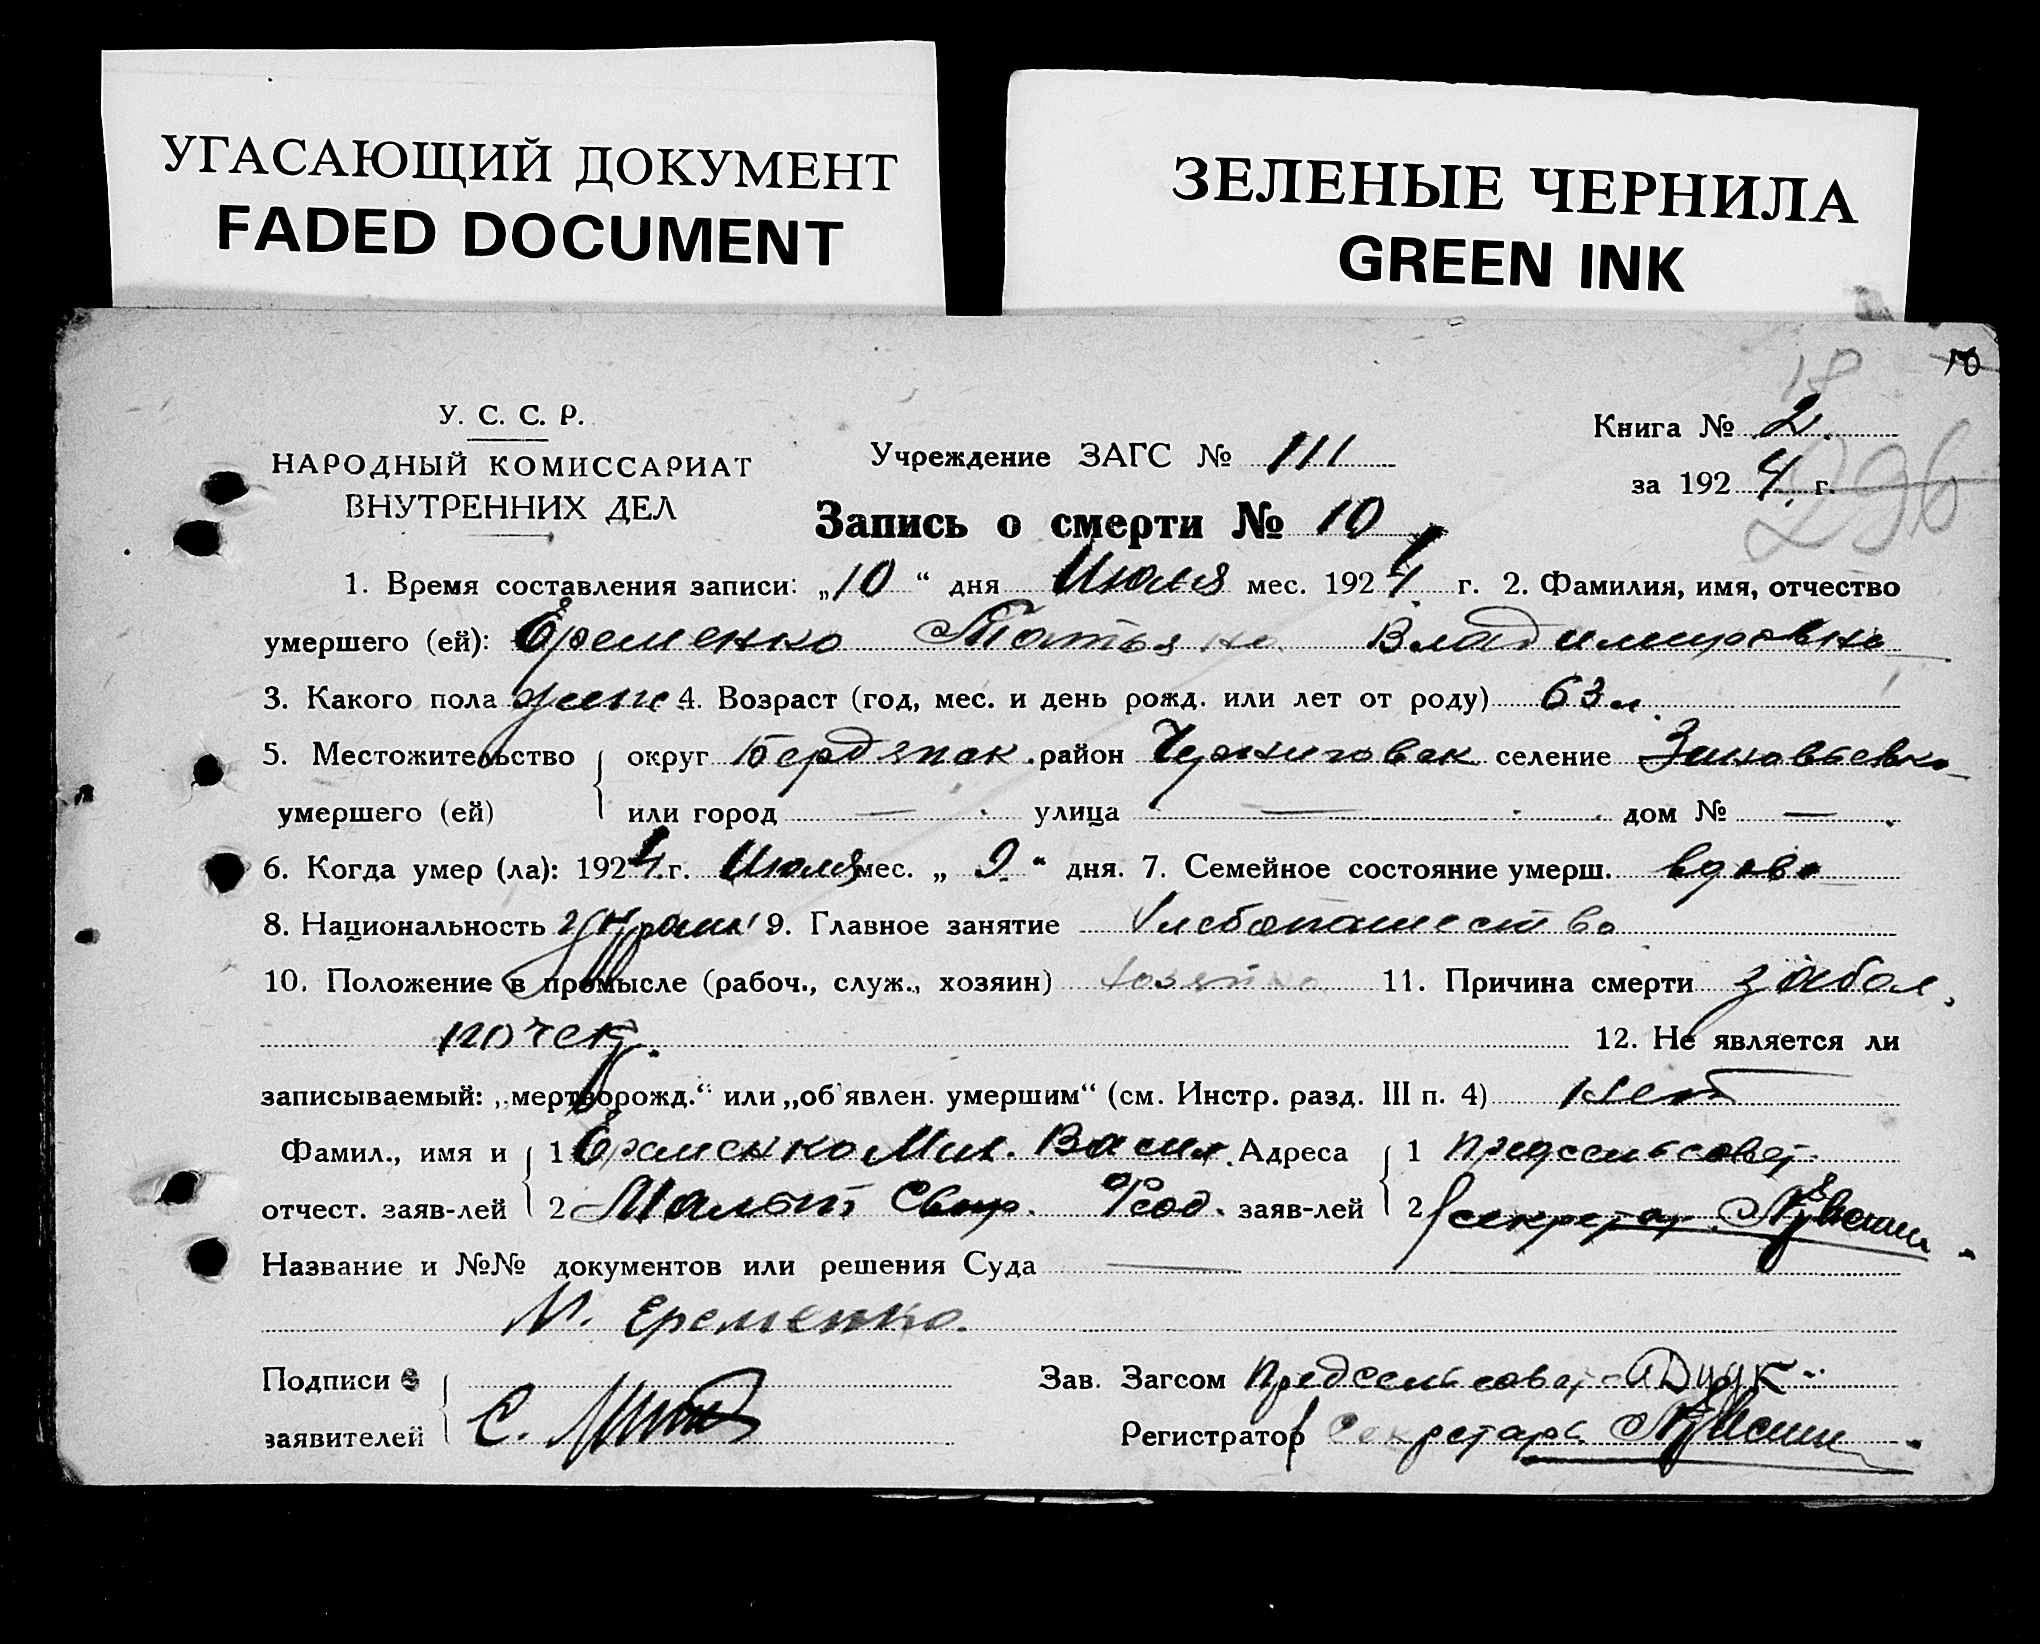 УГАСАЮЩИЙ ДОКУМЕНТ
FADED DOCUMENT
ЗЕЛЕНЫЕ ЧЕРНИЛА
GREEN INK
18
10
У. С. С. Р.
НАРОДНЫЙ КОМИССАРИАТ
ВНУТРЕННИХ ДЕЛ
Учреждение ЗАГС № 111
Книга № 2.
за 1924 г.
296
Запись о смерти № 10
1. Время составления записи: „10" дня Июля мес. 1924 г. 2. Фамилия, имя, отчество
умершего (ей): Еременко Татьяна Владимировна
3. Какого пола жен. 4. Возраст (год, мес. и день рожд. или лет от роду) 63 л.
5. Местожительство округ Бердянск. район Черниговск. селение Зиновьевка
умершего (ей) или город — улица — дом № —
6. Когда умер (ла): 1924 г. Июля мес. „ 9 " дня. 7. Семейное состояние умерш. вдова
8. Национальность Украин 9. Главное занятие Хлебопашество
10. Положение в промысле (рабоч., служ., хозяин) хозяйка 11. Причина смерти забол.
почек. 12. Не является ли
записываемый: „мертворожд." или „об'явлен. умершим" (см. Инстр. разд. III п. 4) нет
Фамил., имя и 1 Еременко Мих. Васил. Адреса 1 предсельсовет
отчест. заяв-лей 2 Свир. Феод. заяв-лей 2 секретар.
Название и №№ документов или решения Суда —
М. Еременко.
Подписи
заявителей С.
Зав. Загсом Предсельсовет
Регистратор Секретарь